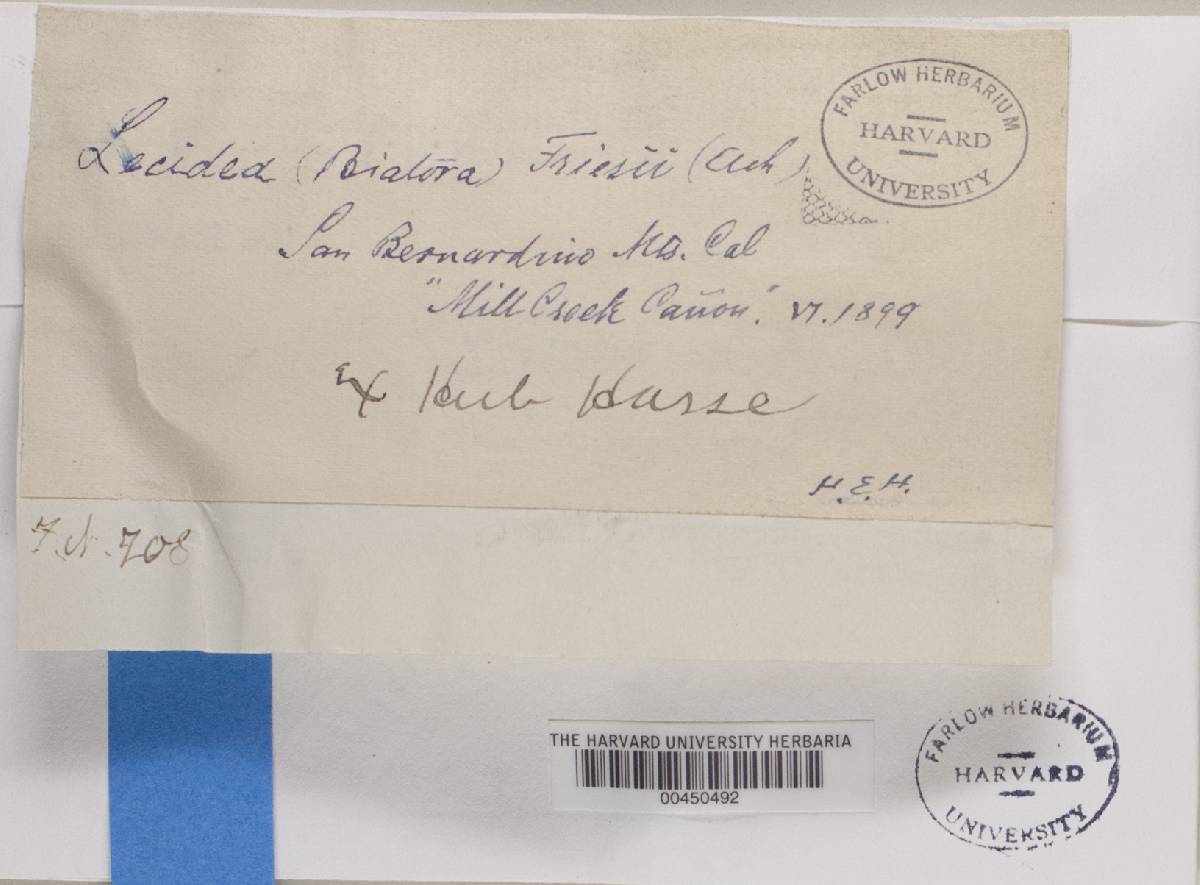 FARLOW HERBARIUM
HARVARD
UNIVERSITY
Lecidea (Biatora) Friesii (Ach)
San Bernardino Mts. Cal
"Mill Creek Cañon". VI. 1899
Ex Herb Hasse
H.E.H.
708
THE HARVARD UNIVERSITY HERBARIA
00450492
FARLOW HERBARIUM
HARVARD
UNIVERSITY